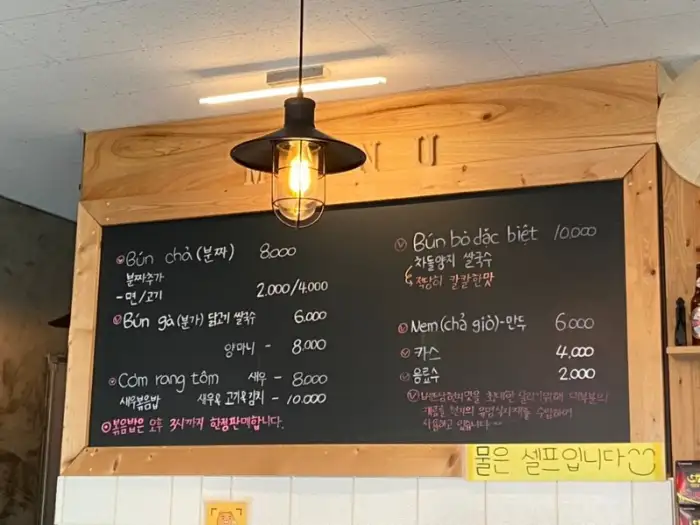 MENU
Bún chả (분짜) 8.000
분짜추가
- 면/고기 2.000/4.000
Bún gà (분가) 닭고기 쌀국수 6.000
양마니 - 8,000
Cơm rang tôm 새우 - 8.000
새우볶음밥 새우& 고기&김치 - 10.000
볶음밥은 오후 3시까지 한정판매합니다.
Bún bò đặc biệt 10.000
차돌양지 쌀국수
적당히 칼칼한맛
Nem (chả giò) - 만두 6.000
카스 4,000
음료수 2.000
베트남현지맛을 최대한 살리기위해 대부분의
수입하여
사용하고 있습니다
물은 셀프입니다